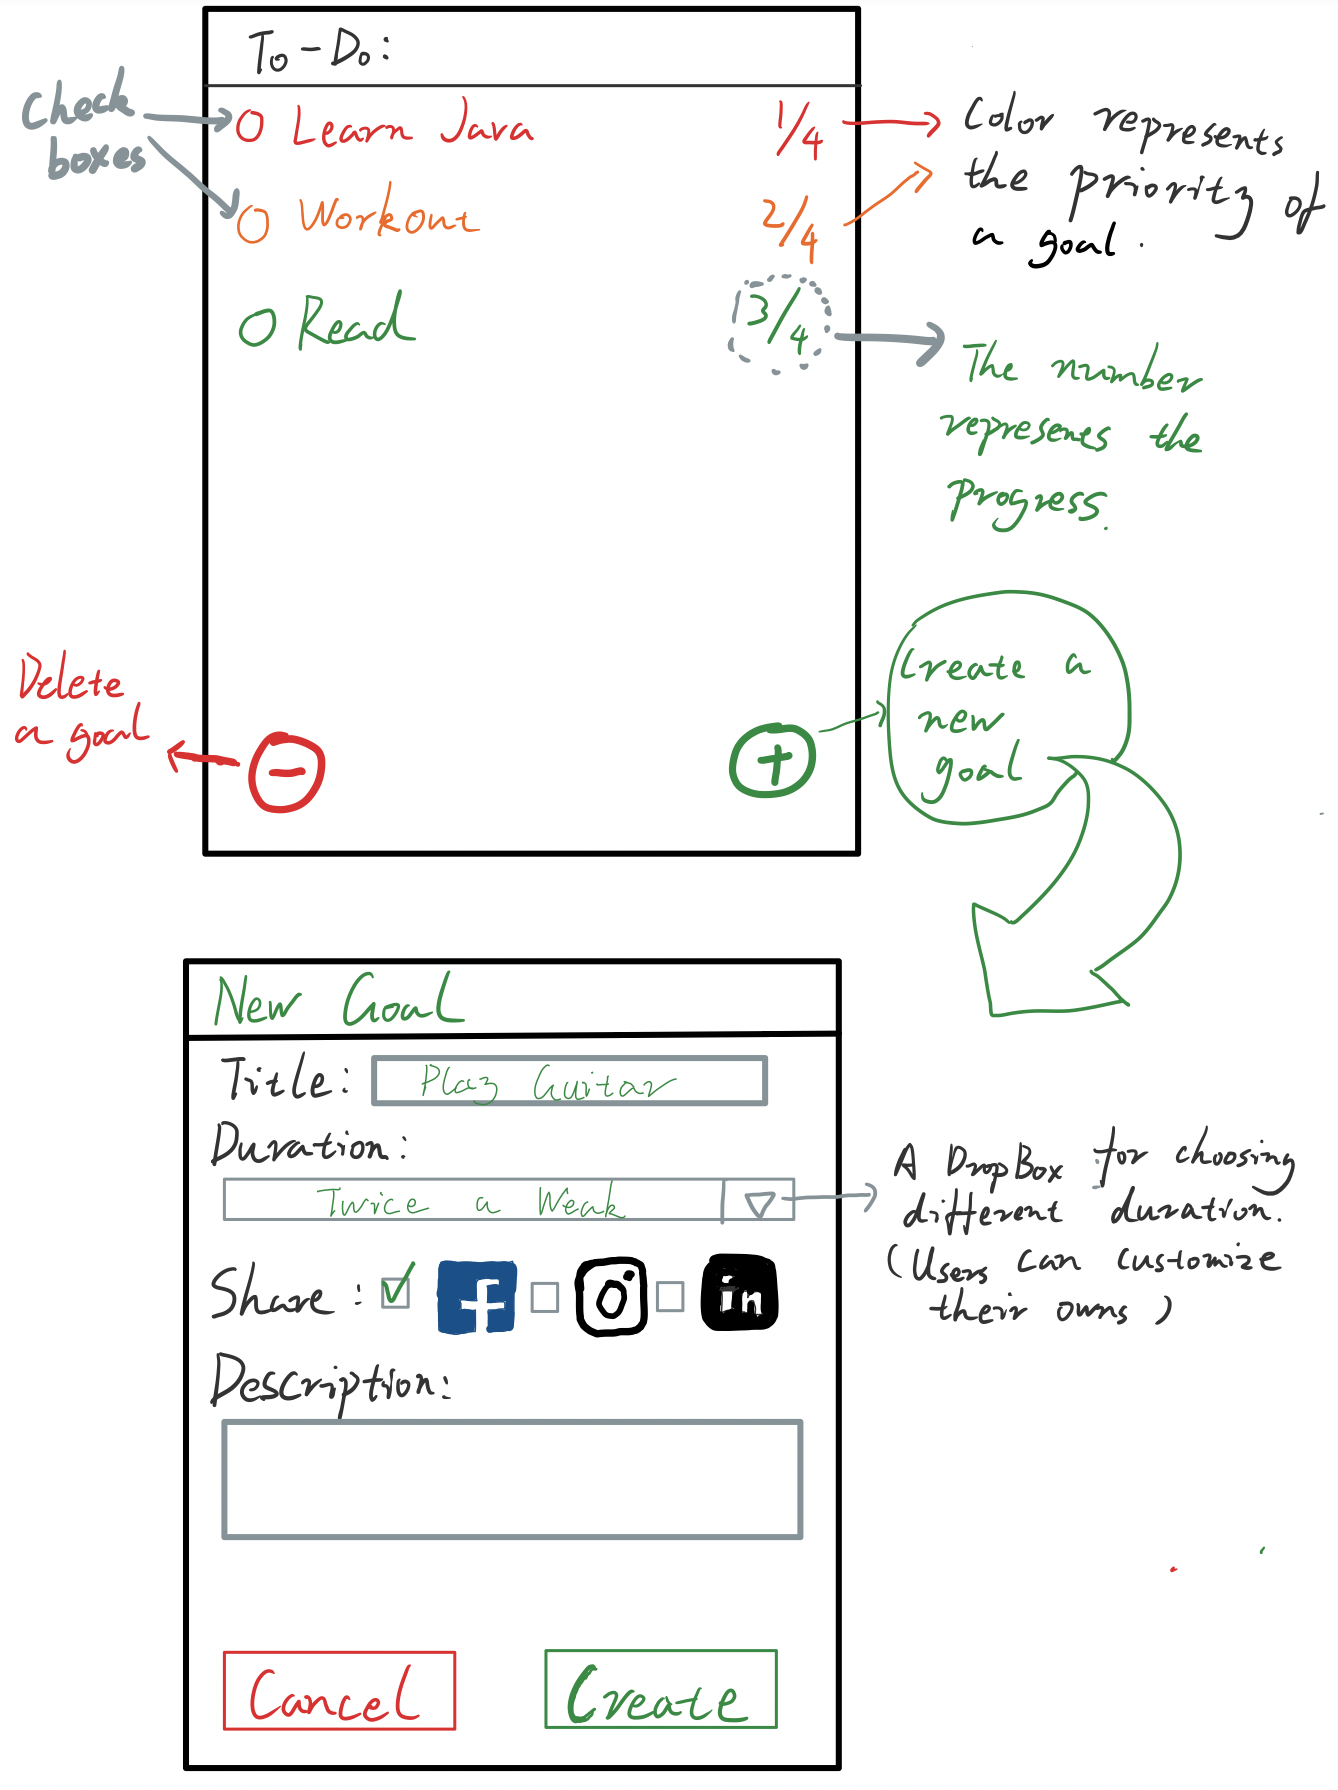 To-Do:
Check
boxes
Learn Java 1/4
Workout 2/4
Read 3/4
Color represents
the priority of
a goal.
The number
represents the
Progress.
Delete
a goal
-
+
Create a
new
goal
New Goal
Title: Play Guitar
Duration:
Twice a Weak
Share: f in
Description:
A DropBox for choosing
different duration.
(Users can customize
their owns)
Cancel Create